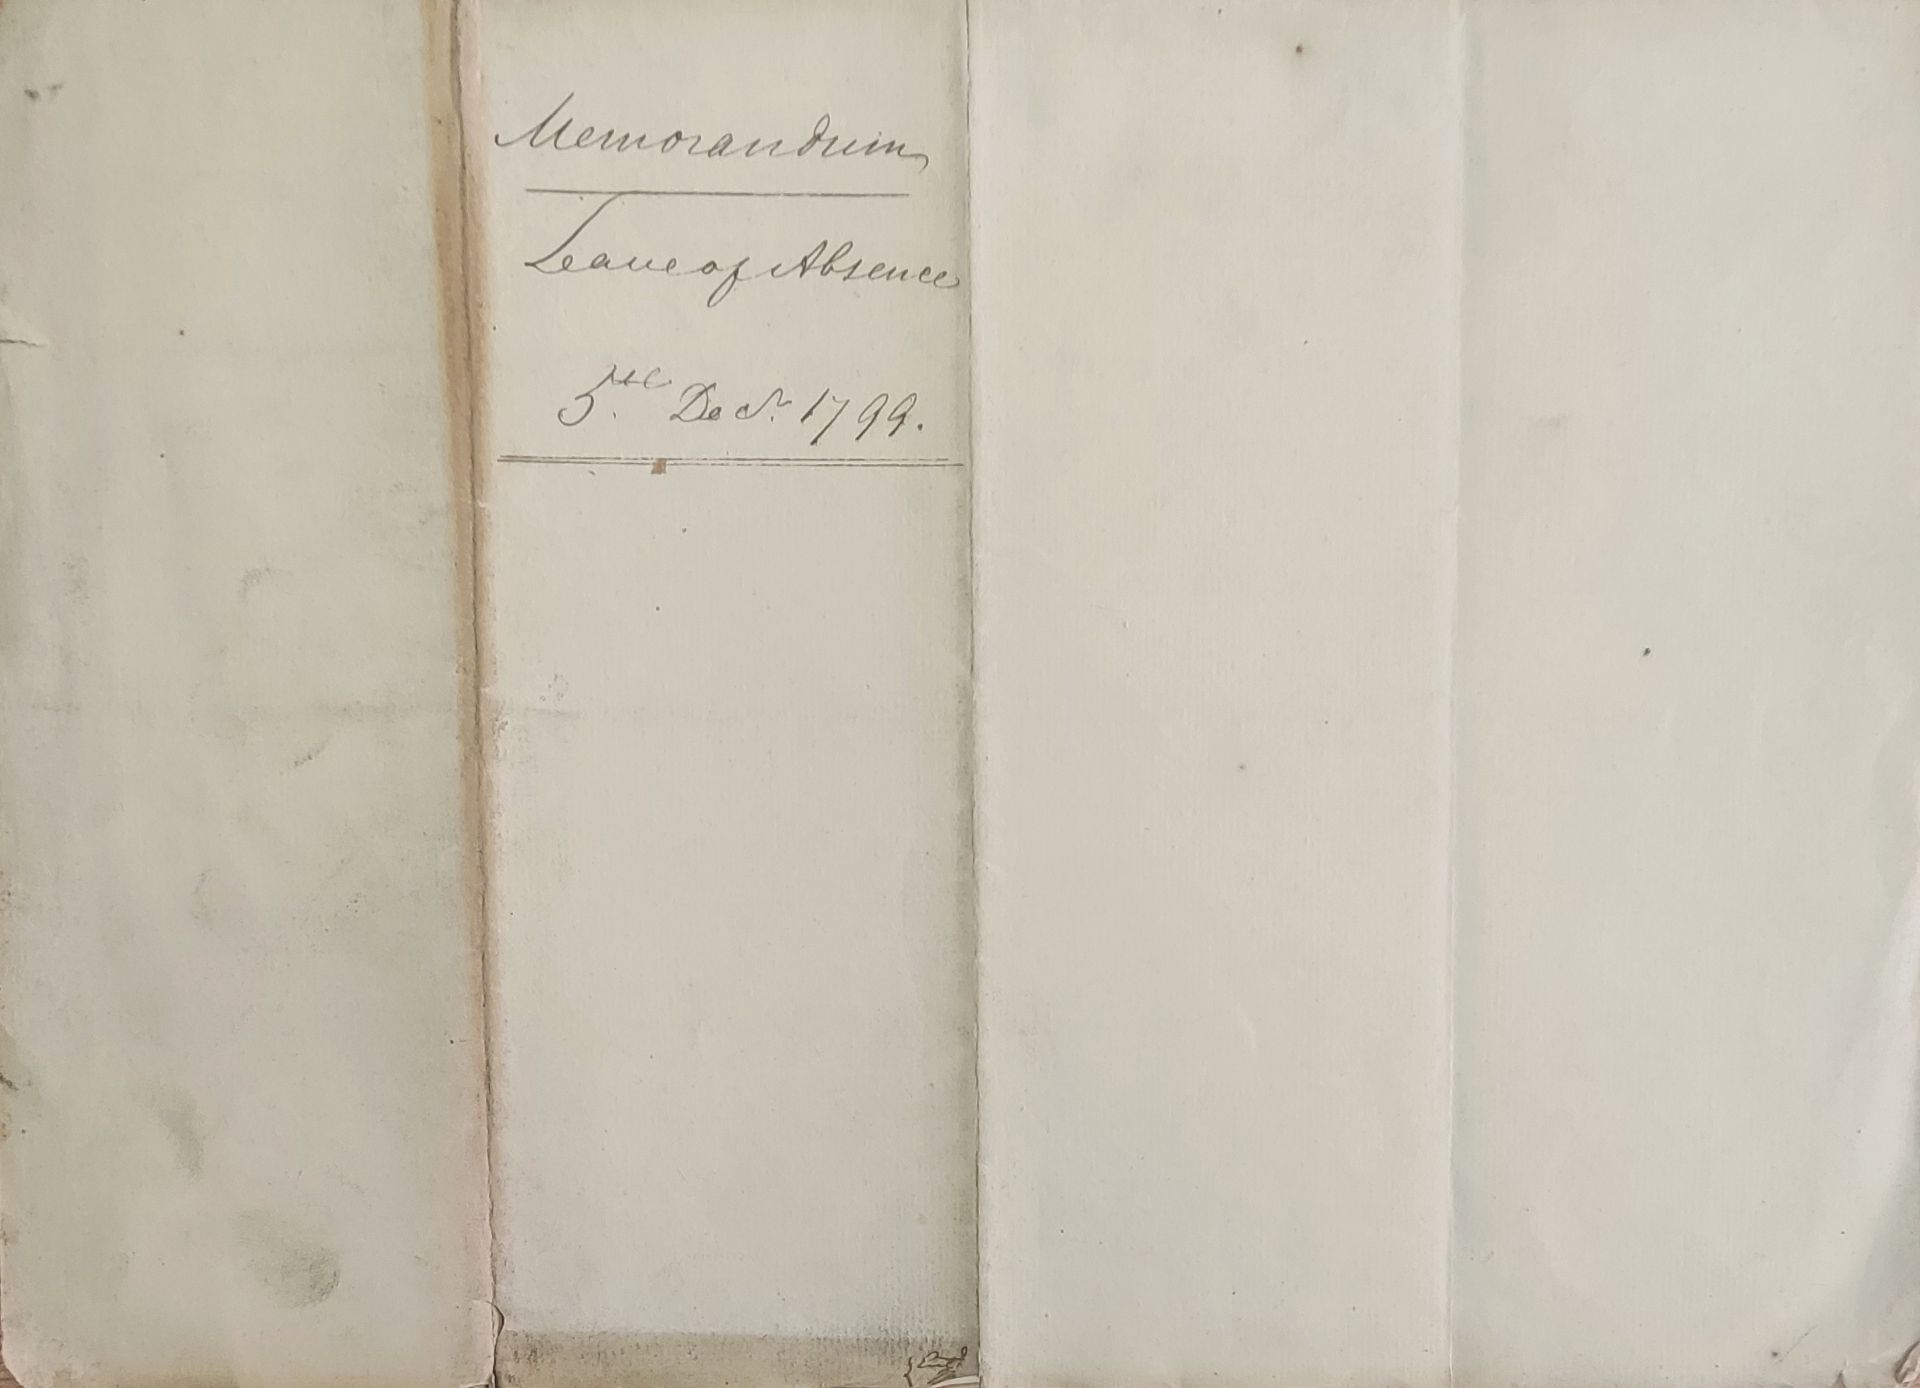 Memorandum
Leave of Absence
5th Decr. 1799.